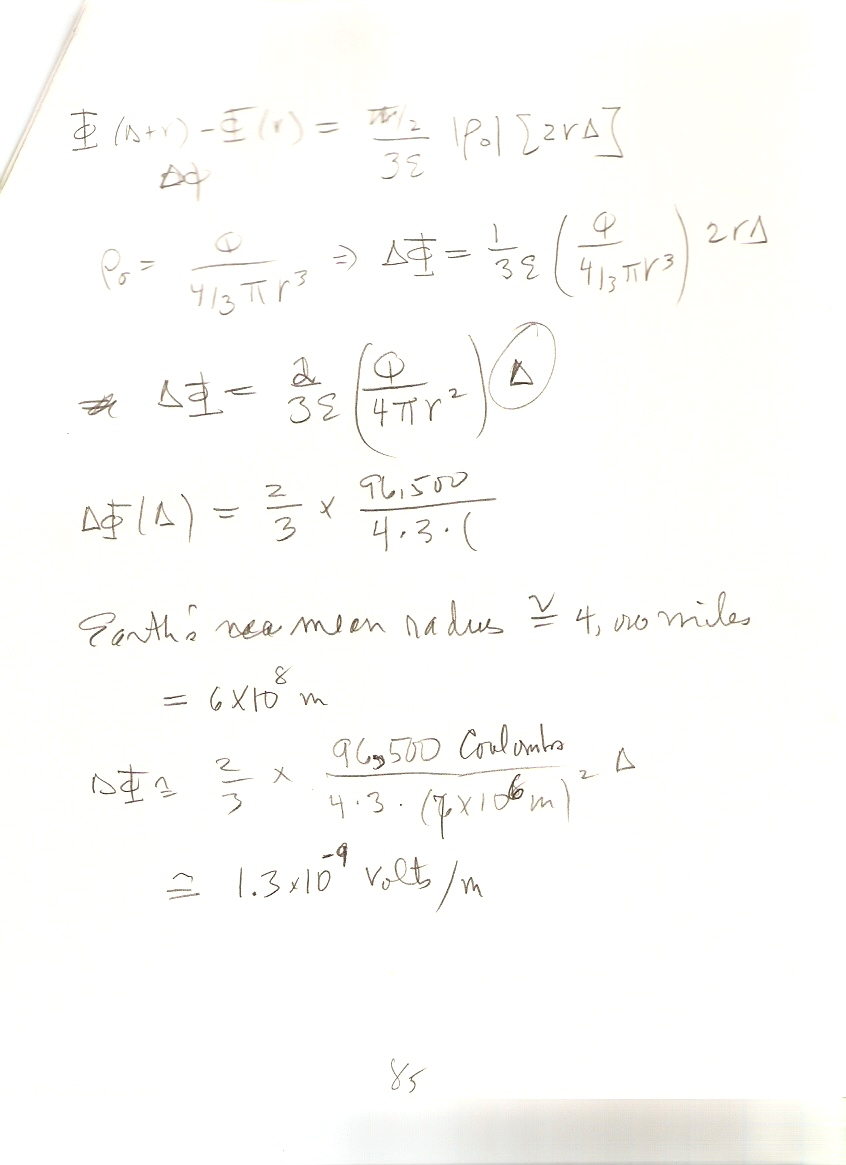 Φ(Δ+r) - Φ(r) = /2 / 3ε |ρ₀| [2rΔ]
Δφ
ρ₀ = Q / (4/3 πr³) ⇒ ΔΦ = 1/3ε (Q / (4/3 πr³)) 2rΔ
ΔΦ = 2/3ε (Q / 4πr²) Δ
ΔΦ(Δ) = 2/3 × 96,500 / 4·3·(
Earth's mean radius ≅ 4,000 miles
= 6×10⁸ m
ΔΦ ≃ 2/3 × 96,500 Coulombs / 4·3·(×10⁶ m)² Δ
≅ 1.3×10⁻⁹ volts/m
85